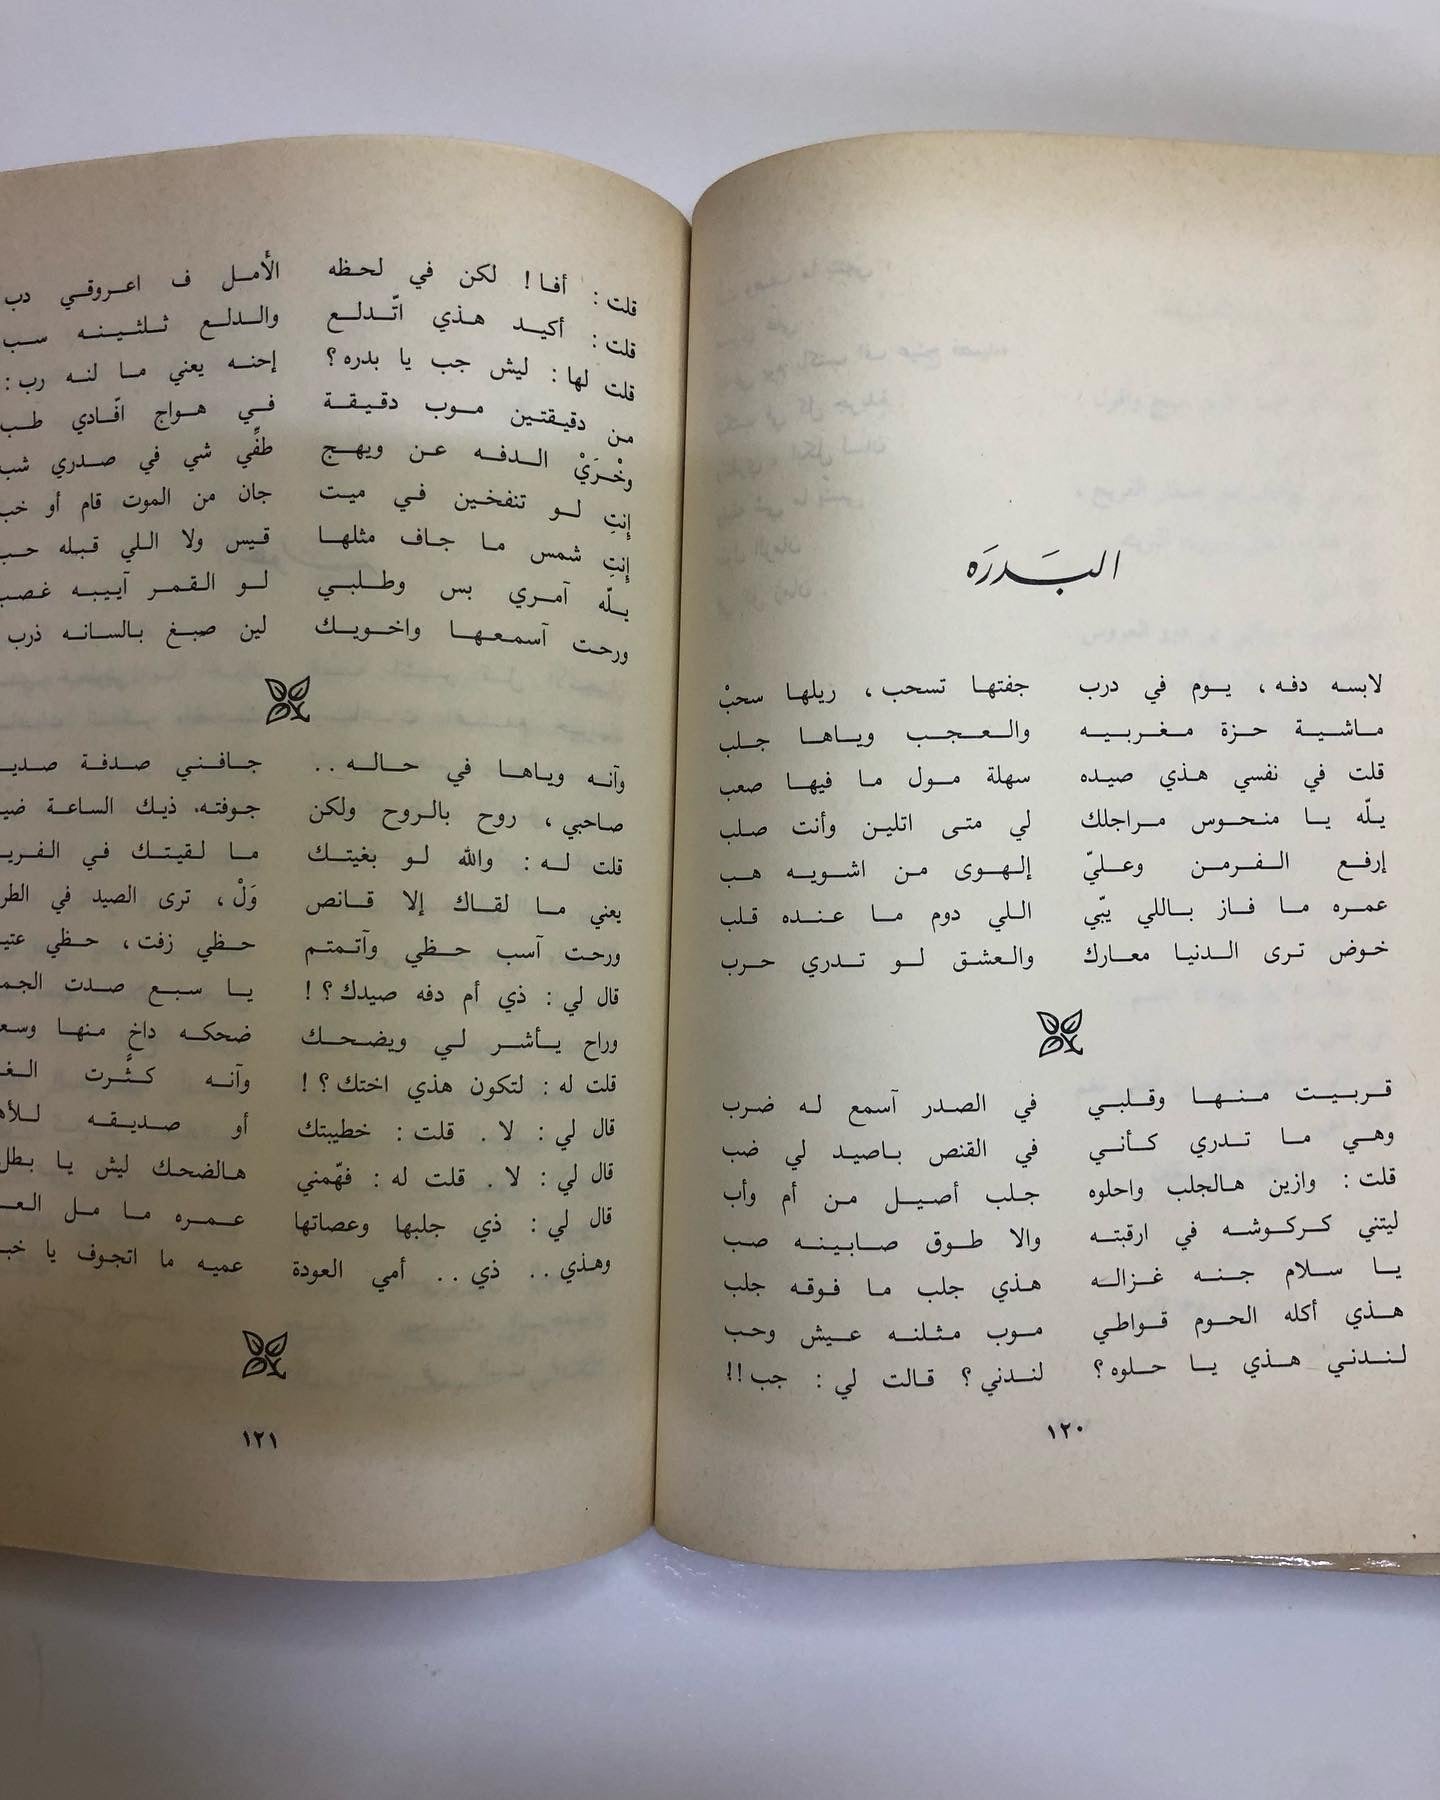 البَدرَه
لابسه دفه ، يوم في درب جفتها تسحب ، ريلها سحبْ
ماشية حزة مغربيه والعجب وياها جلب
قلت في نفسي هذي صيده سهلة مول ما فيها صعب
يلّه يا منحوس مراجلك لي متى اتلين وأنت صلب
إرفع الفرمن وعليّ إلهوى من اشويه هب
عمره ما فاز باللي يبّي اللي دوم ما عنده قلب
خوض ترى الدنيا معارك والعشق لو تدري حرب
قربيت منها وقلبي في الصدر آسمع له ضرب
وهي ما تدري كأني في القنص باصيد لي ضب
قلت : وازين هالجلب واحلوه جلب أصيل من أم وأب
ليتني كركوشه في ارقبته والا طوق صابينه صب
يا سلام جنه غزاله هذي جلب ما فوقه جلب
هذي أكله الحوم قواطي موب مثلنه عيش وحب
لندني هذي يا حلوه ؟ لندني ؟ قالت لي : جب !!
١٢٠
قلت : أفا ! لكن في لحظه الأمل ف اعروقي دب
قلت : أكيد هذي اتّدلع والدلع ثلثينه سب
قلت لها : ليش جب يا بدره ؟ إحنه يعني ما لنه رب :
من دقيقتين موب دقيقة في هواج افّادي طب
وخْرَيْ الدفه عن ويهج طفِّي شي في صدري شب
إنتِ لو تنفخين في ميت جان من الموت قام أو خب
إنتِ شمس ما جاف مثلها قيس ولا اللي قبله حب
يلّه آمري بس وطلبي لو القمر آييبه غصب
ورحت آسمعها واخويك لين صبغ بالسانه ذرب
وآنه وياها في حاله .. جافني صدفة
صاحبي ، روح بالروح ولكن جوفته. ذيك الساعة
قلت له : والله لو بغيتك ما لقيتك في
يعني ما لقاك إلا قانص وَلْ ، ترى الصيد في
ورحت آسب حظي وآتمتم حظي زفت ، حظي
قال لي : ذي أم دفه صيدك ؟ ! يا سبع صدت
وراح يأشر لي ويضحك ضحكه داخ منها
قلت له : لتكون هذي اختك ؟ ! وآنه كثَّرت
قال لي : لا . قلت : خطيبتك أو صديقه
قال لي : لا . قلت له : فهّمني هالضحك ليش يا بطل
قال لي : ذي جلبها وعصاتها عمره ما مل
وهذي .. ذي .. أمي العودة عميه ما اتجوف يا
١٢١